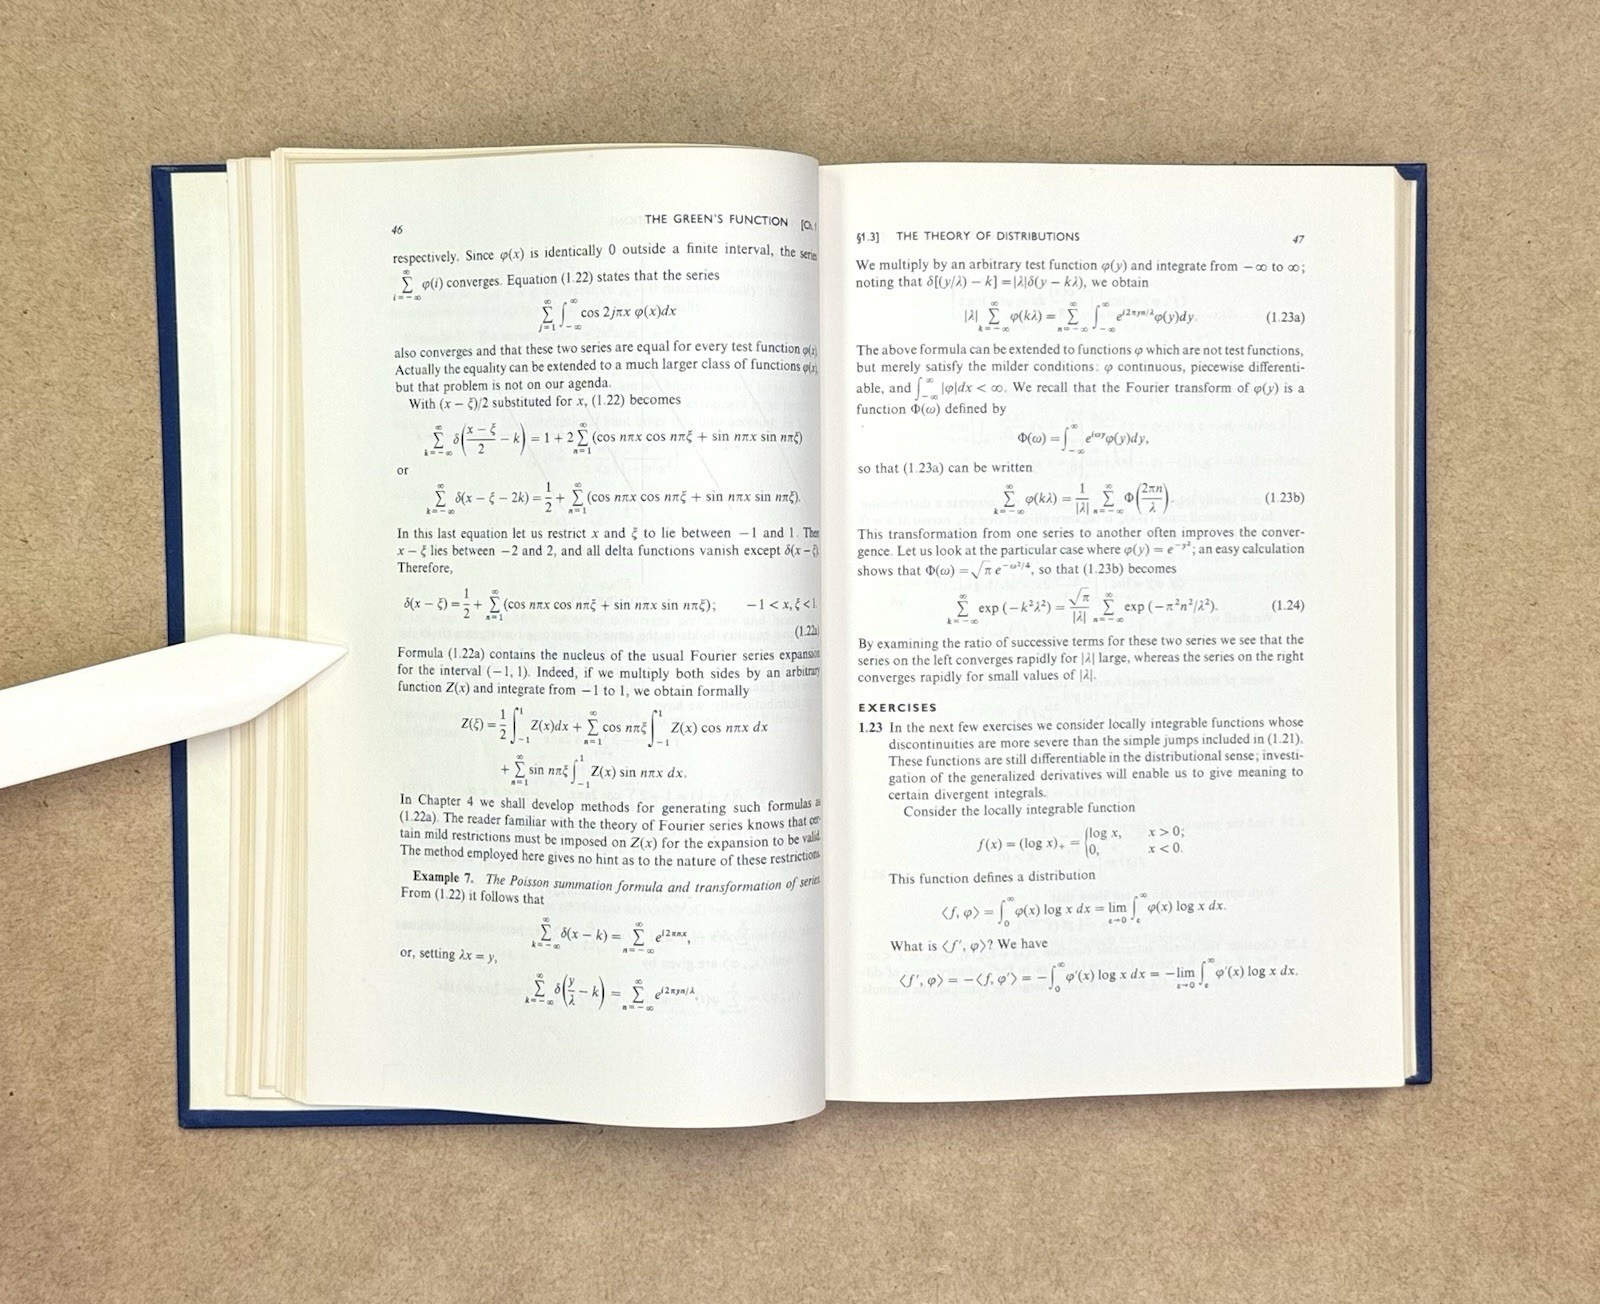 46
THE GREEN'S FUNCTION [Ch. 1
respectively. Since φ(x) is identically 0 outside a finite interval, the series
∑_{i=−∞}^{∞} φ(i) converges. Equation (1.22) states that the series
∑_{j=1}^{∞} ∫_{−∞}^{∞} cos 2jπx φ(x)dx
also converges and that these two series are equal for every test function φ(x).
Actually the equality can be extended to a much larger class of functions φ(x),
but that problem is not on our agenda.
With (x − ξ)/2 substituted for x, (1.22) becomes
∑_{k=−∞}^{∞} δ((x − ξ)/2 − k) = 1 + 2 ∑_{n=1}^{∞} (cos nπx cos nπξ + sin nπx sin nπξ)
or
∑_{k=−∞}^{∞} δ(x − ξ − 2k) = 1/2 + ∑_{n=1}^{∞} (cos nπx cos nπξ + sin nπx sin nπξ).
In this last equation let us restrict x and ξ to lie between −1 and 1. Then
x − ξ lies between −2 and 2, and all delta functions vanish except δ(x − ξ).
Therefore,
δ(x − ξ) = 1/2 + ∑_{n=1}^{∞} (cos nπx cos nπξ + sin nπx sin nπξ); −1 < x, ξ < 1.
(1.22a)
Formula (1.22a) contains the nucleus of the usual Fourier series expansion
for the interval (−1, 1). Indeed, if we multiply both sides by an arbitrary
function Z(x) and integrate from −1 to 1, we obtain formally
Z(ξ) = 1/2 ∫_{−1}^{1} Z(x)dx + ∑_{n=1}^{∞} cos nπξ ∫_{−1}^{1} Z(x) cos nπx dx
+ ∑_{n=1}^{∞} sin nπξ ∫_{−1}^{1} Z(x) sin nπx dx.
In Chapter 4 we shall develop methods for generating such formulas as
(1.22a). The reader familiar with the theory of Fourier series knows that cer-
tain mild restrictions must be imposed on Z(x) for the expansion to be valid.
The method employed here gives no hint as to the nature of these restrictions.
Example 7. The Poisson summation formula and transformation of series.
From (1.22) it follows that
∑_{k=−∞}^{∞} δ(x − k) = ∑_{n=−∞}^{∞} e^{i2πnx},
or, setting λx = y,
∑_{k=−∞}^{∞} δ(y/λ − k) = ∑_{n=−∞}^{∞} e^{i2πyn/λ}.
§1.3] THE THEORY OF DISTRIBUTIONS
47
We multiply by an arbitrary test function φ(y) and integrate from −∞ to ∞;
noting that δ[(y/λ) − k] = |λ|δ(y − kλ), we obtain
|λ| ∑_{k=−∞}^{∞} φ(kλ) = ∑_{n=−∞}^{∞} ∫_{−∞}^{∞} e^{i2πyn/λ}φ(y)dy. (1.23a)
The above formula can be extended to functions φ which are not test functions,
but merely satisfy the milder conditions: φ continuous, piecewise differenti-
able, and ∫_{−∞}^{∞} |φ|dx < ∞. We recall that the Fourier transform of φ(y) is a
function Φ(ω) defined by
Φ(ω) = ∫_{−∞}^{∞} e^{iωy}φ(y)dy,
so that (1.23a) can be written
∑_{k=−∞}^{∞} φ(kλ) = 1/|λ| ∑_{n=−∞}^{∞} Φ(2πn/λ). (1.23b)
This transformation from one series to another often improves the conver-
gence. Let us look at the particular case where φ(y) = e^{−y²}; an easy calculation
shows that Φ(ω) = √π e^{−ω²/4}, so that (1.23b) becomes
∑_{k=−∞}^{∞} exp (−k²λ²) = √π/|λ| ∑_{n=−∞}^{∞} exp (−π²n²/λ²). (1.24)
By examining the ratio of successive terms for these two series we see that the
series on the left converges rapidly for |λ| large, whereas the series on the right
converges rapidly for small values of |λ|.
EXERCISES
1.23 In the next few exercises we consider locally integrable functions whose
discontinuities are more severe than the simple jumps included in (1.21).
These functions are still differentiable in the distributional sense; investi-
gation of the generalized derivatives will enable us to give meaning to
certain divergent integrals.
Consider the locally integrable function
f(x) = (log x)₊ = { log x, x > 0;
0, x < 0.
This function defines a distribution
⟨f, φ⟩ = ∫_0^∞ φ(x) log x dx = lim_{ε→0} ∫_ε^∞ φ(x) log x dx.
What is ⟨f′, φ⟩? We have
⟨f′, φ⟩ = −⟨f, φ′⟩ = −∫_0^∞ φ′(x) log x dx = −lim_{ε→0} ∫_ε^∞ φ′(x) log x dx.